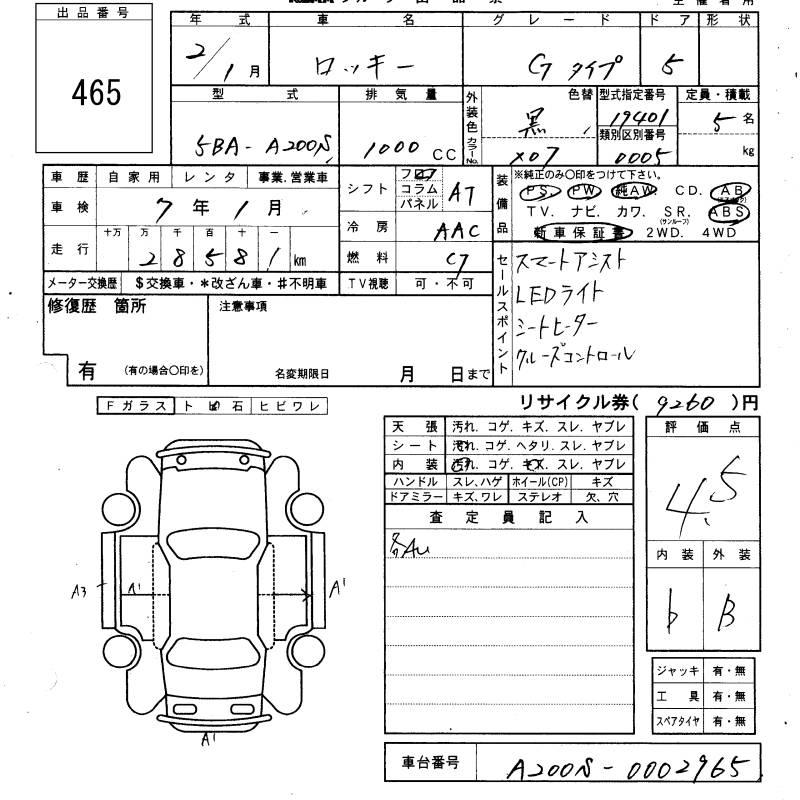 出品番号
465
年 式 車 名 グレード ドア 形状
2/1月 ロッキー Gタイプ 5
型 式 排気量 外装色 色替 型式指定番号 定員・積載
5BA-A200S 1000CC 黒 19401 5名
カラーNo. X07 類別区別番号 0005 kg
車歴 自家用 レンタ 事業.営業車
車検 7年1月
走行 十万 万 千 百 十 一
2 8 5 8 1 km
メーター交換歴 $交換車・*改ざん車・#不明車
シフト フロア コラム パネル AT
冷房 AAC
燃料 G
TV視聴 可・不可
装備品 ※純正のみ〇印をつけて下さい。
PS. PW. 純AW. CD. AB
TV. ナビ. カワ. SR. ABS
(サンルーフ)
新車保証書 2WD. 4WD
セールスポイント
スマートアシスト
LEDライト
シートヒーター
クルーズコントロール
修復歴 箇所
有 (有の場合〇印を)
注意事項
名変期限日 月 日まで
リサイクル券( 9260 )円
Fガラス 飛石 ヒビワレ
天張 汚れ. コゲ. キズ. スレ. ヤブレ
シート 汚れ. コゲ. ヘタリ. スレ. ヤブレ
内装 汚れ. コゲ. キズ. スレ. ヤブレ
ハンドル スレ、ハゲ ホイール(CP) キズ
ドアミラー キズ、ワレ ステレオ 欠、穴
査定員記入
評価点
4.5
内装 外装
b B
ジャッキ 有・無
工具 有・無
スペアタイヤ 有・無
A3 A1 A1
A1
車台番号 A200S-0002965